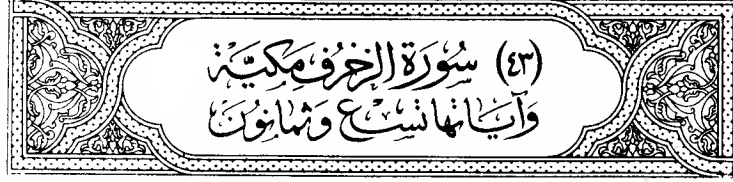 (٤٣) سُورَة الزخرُف مَكيَّة
وَآيَاتها تسْع وَثمانوُنَ